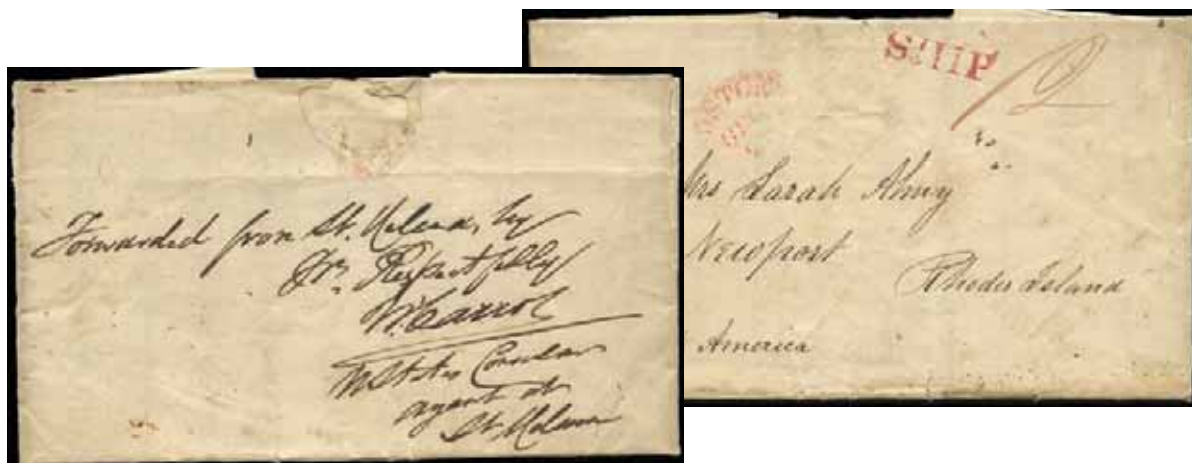 Forwarded from St. Helena, by
Yrs Respectfully
W. Carrol
U States Consular
agent at
St. Helena
SHIP
12
Mrs Sarah Almy
Newport
Rhodes Island
America